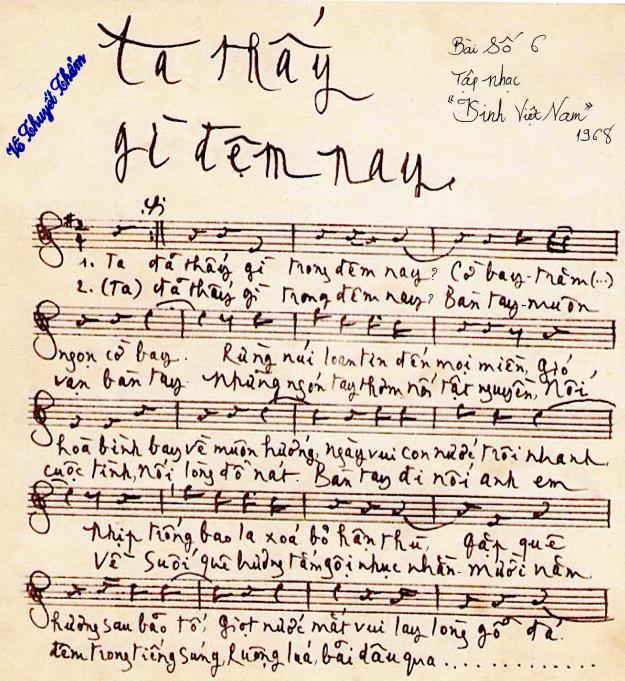 Ta thấy
gì đêm nay
Bài Số 6
Tập nhạc
"Kinh Việt Nam"
1968
Võ Thuyết Thẩm
2/4
1. Ta đã thấy gì trong đêm nay? Cờ bay - trăm (...)
2. (Ta) đã thấy gì trong đêm nay? Bàn tay - muôn
ngọn cờ bay. Rừng núi loan tin đến mọi miền, gió
vạn bàn tay. Những ngón tay thơm nối tật nguyền, Nối
hoà bình bay về muôn hướng, ngày vui con nước trôi nhanh,
cuộc tình, nối lòng đổ nát. Bàn tay đi nối anh em
Nhịp trống bao la xoá bỏ hận thù, gặp quê
Về suối quê hương tắm gội nhục nhằn. Mười năm
hương sau bão tố, giọt nước mắt vui lay lòng gỗ đá.
đêm trong tiếng súng, Ruộng lúa, bãi dâu qua .............